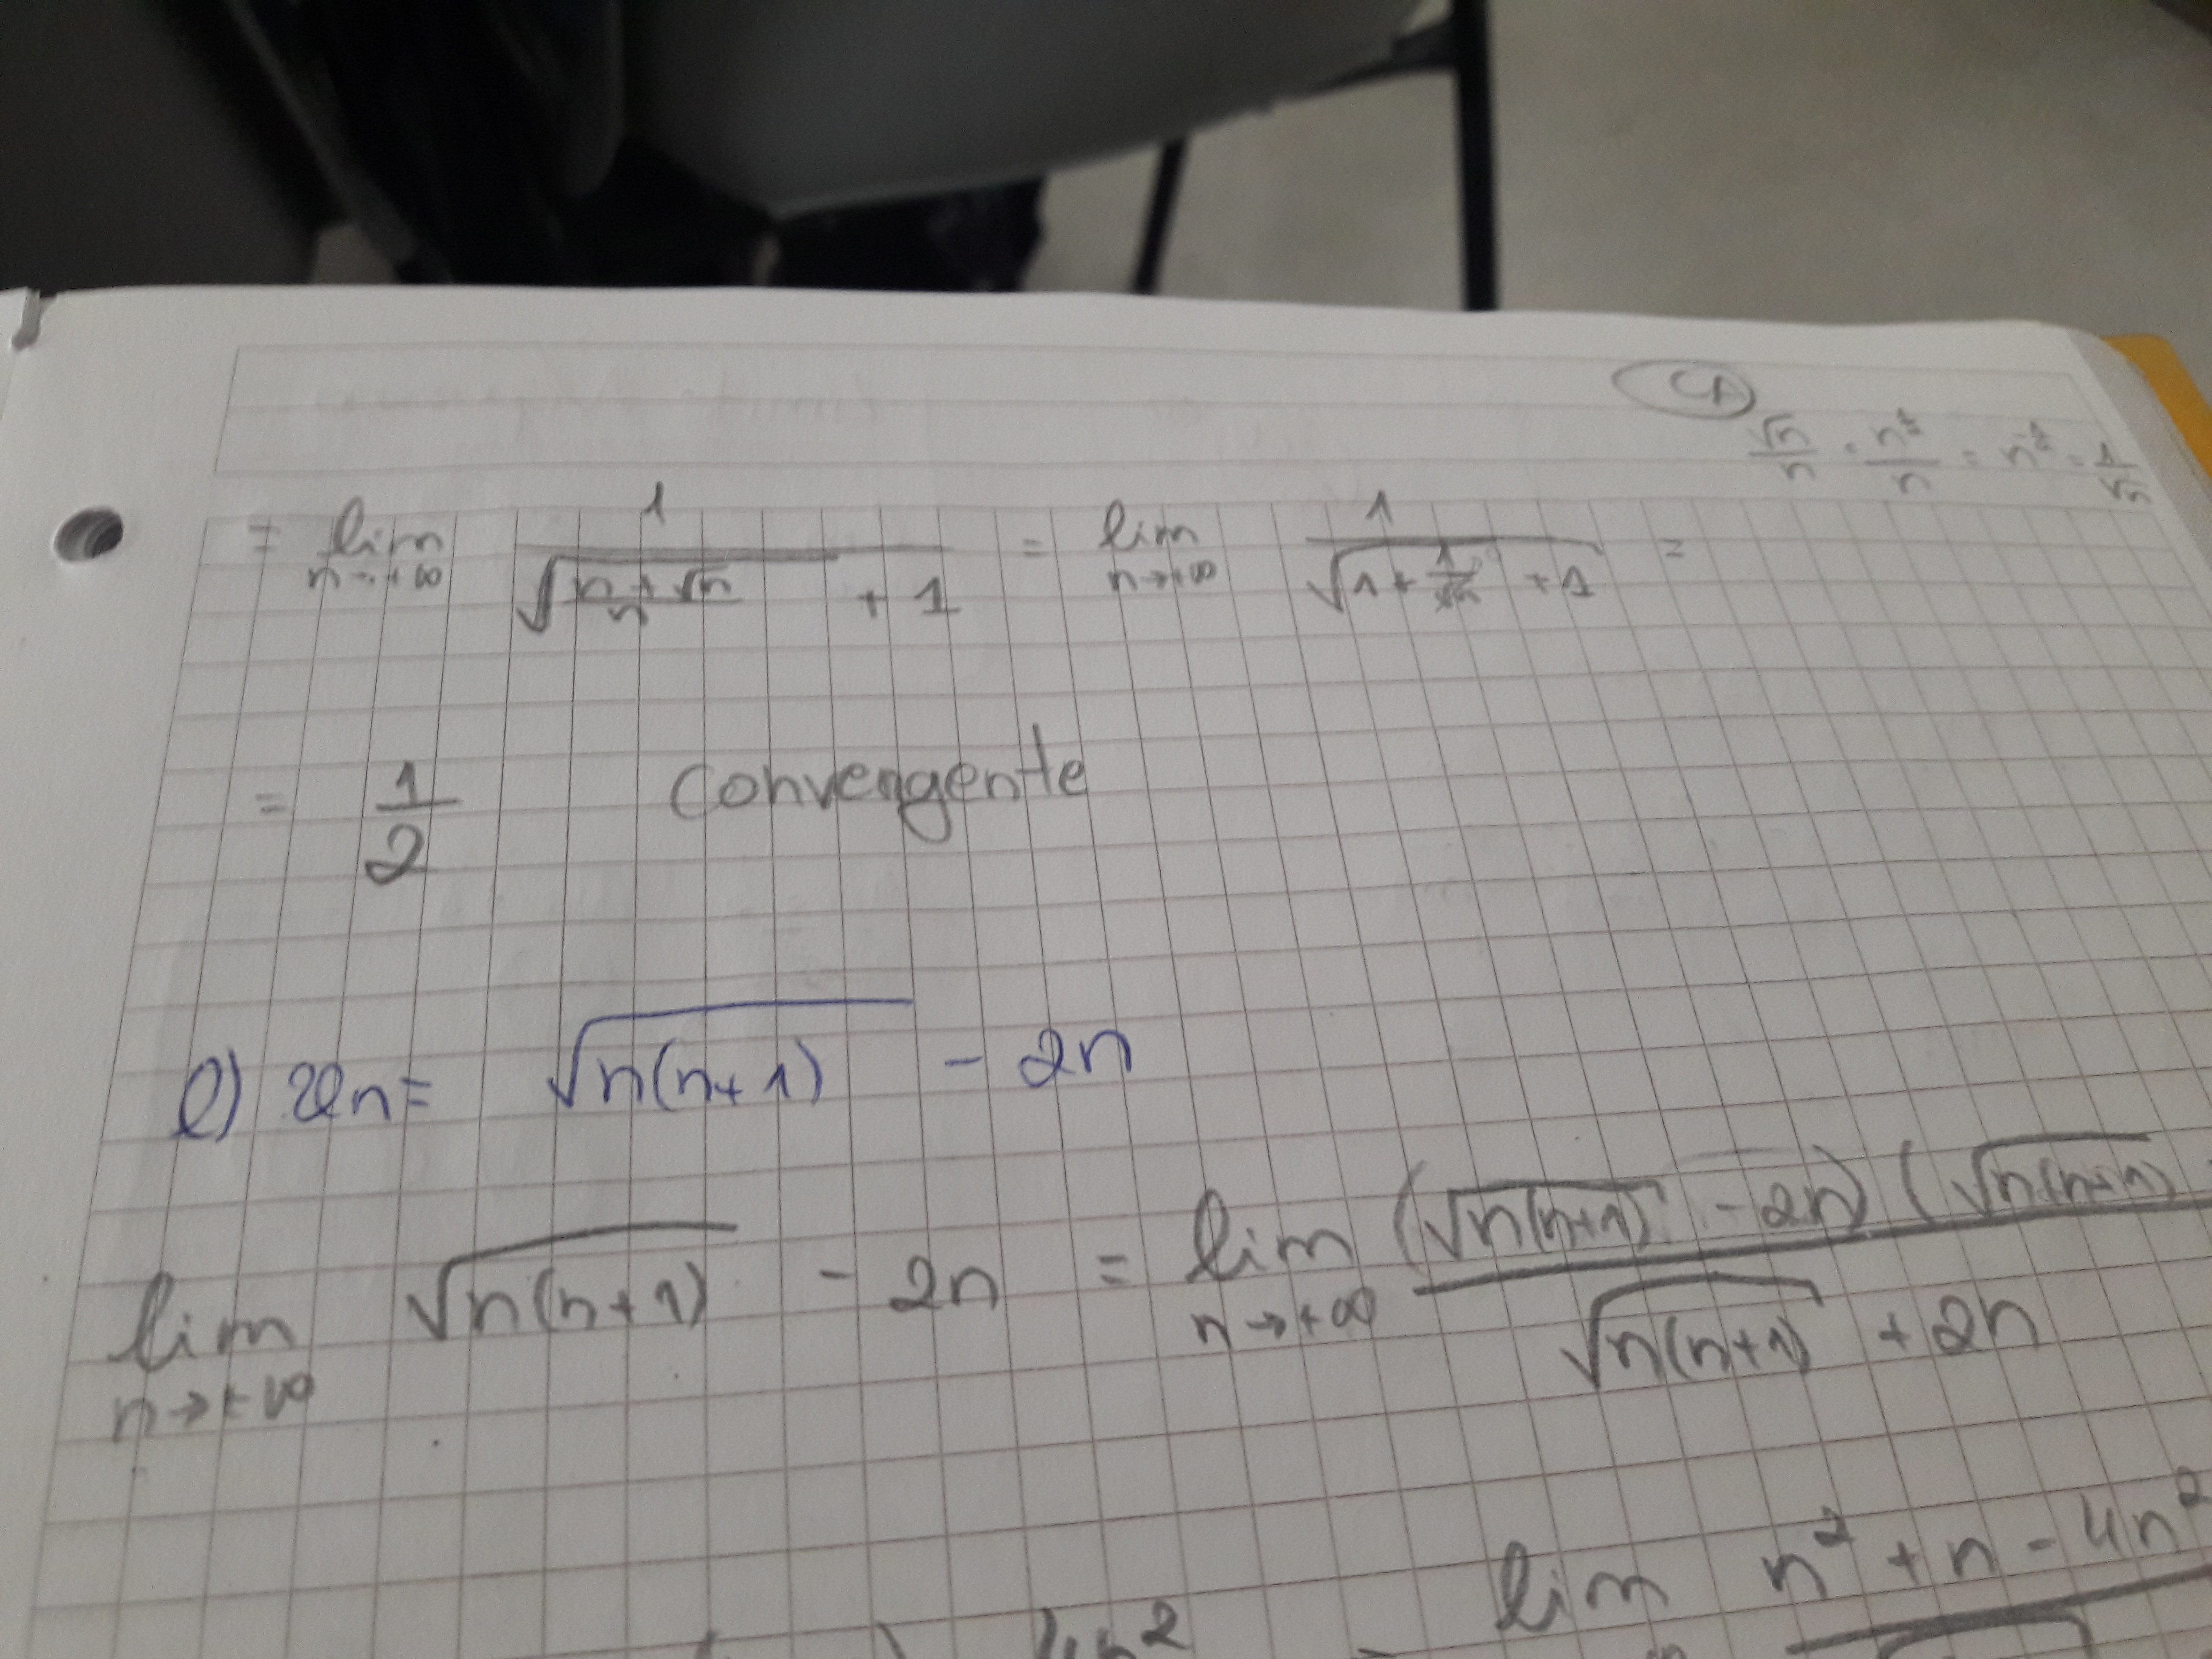 CA
√n/n = n^½/n = n^-½ = 1/√n
= lim n→+∞ 1/(√((n+√n)/n) + 1) = lim n→+∞ 1/(√(1+1/√n) + 1) =
= 1/2 convergente
e) un= √n(n+1) - 2n
lim n→+∞ √n(n+1) - 2n = lim n→+∞ (√n(n+1) - 2n) (√n(n+1) / √n(n+1) + 2n
lim n² + n - 4n²